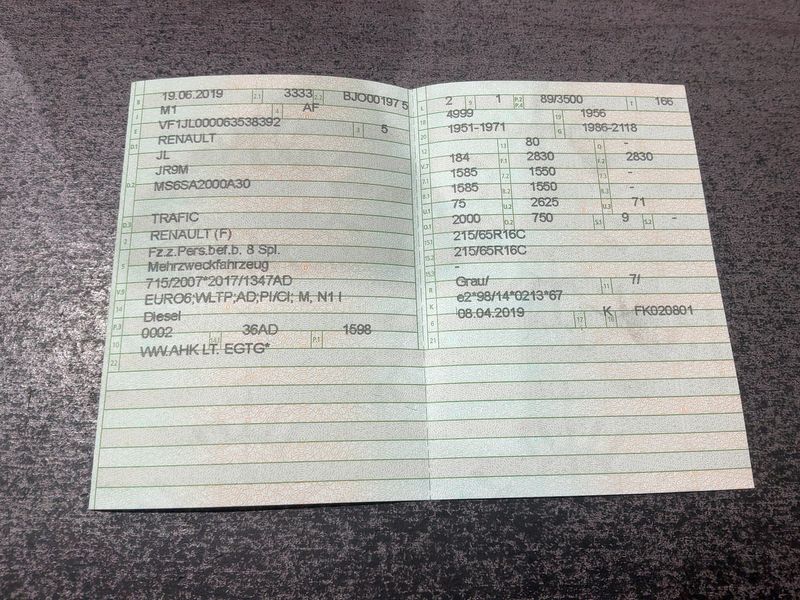 B 19.06.2019 2.1 3333 2.2 BJO00197 5
J M1 4 AF
E VF1JL000063538392 3 5
D.1 RENAULT
JL
D.2 JR9M
MS6SA2000A30
D.3 TRAFIC
2 RENAULT (F)
5 Fz.z.Pers.bef.b. 8 Spl.
Mehrzweckfahrzeug
V.9 715/2007*2017/1347AD
14 EURO6;WLTP;AD;PI/CI; M, N1 I
P.3 Diesel
10 0002 14.1 36AD P.1 1598
22 WW.AHK LT. EGTG*
L 2 9 1 P.2 P.4 89/3500 T 166
18 4999 19 1956
20 1951-1971 G 1986-2118
12 - 13 80 Q -
V.7 184 F.1 2830 F.2 2830
7.1 1585 7.2 1550 7.3 -
8.1 1585 8.2 1550 8.3 -
U.1 75 U.2 2625 U.3 71
O.1 2000 O.2 750 S.1 9 S.2 -
15.1 215/65R16C
15.2 215/65R16C
15.3 -
R Grau/ 11 7/
K e2*98/14*0213*67
6 08.04.2019 17 K 16 FK020801
21